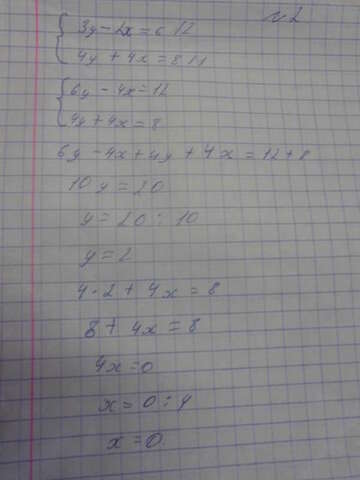 №2
{ 3y - 2x = 6 | 2
4y + 4x = 8 | 1
{ 6y - 4x = 12
4y + 4x = 8
6y - 4x + 4y + 4x = 12 + 8
10y = 20
y = 20 : 10
y = 2
4 · 2 + 4x = 8
8 + 4x = 8
4x = 0
x = 0 : 4
x = 0